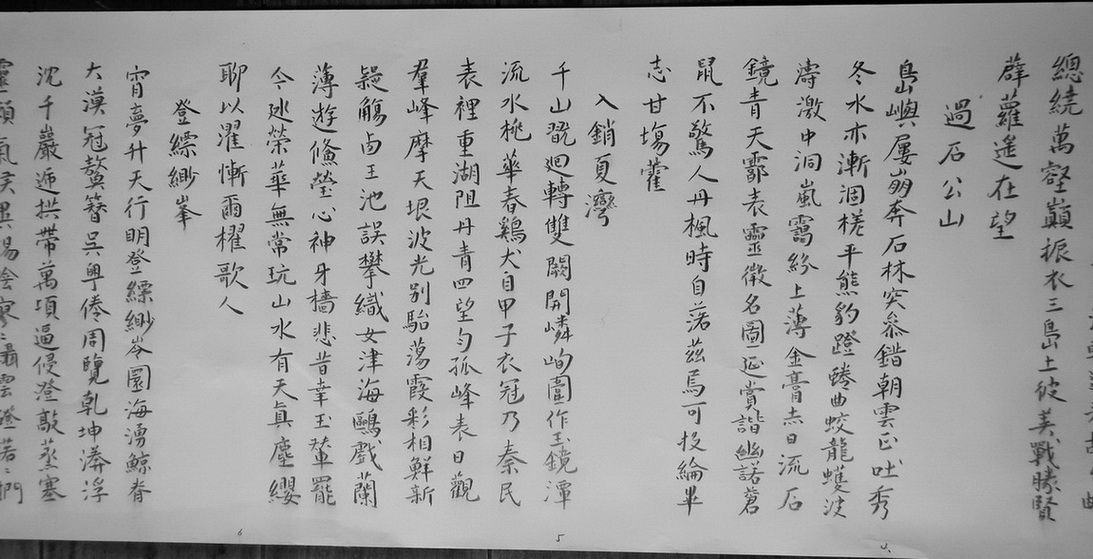 總繞萬壑巔振衣三島上彼美戰勝賢
薜蘿遙在望
過石公山
島嶼屢崩奔石林突參錯朝雲正吐秀
冬水亦漸涸槎平熊豹蹬蜷曲蛟龍蠖波
濤激中洞嵐靄紛上薄金膏赤日流石
鏡青天霩表靈徵名圖延賞諧幽諾蒼
鼠不驚人丹楓時自落茲焉可投綸畢
志甘場藿
入銷夏灣
千山翫迴轉雙闕開嶙峋圍作玉鏡潭
流水桃華春鷄犬自甲子衣冠乃秦民
表裡重湖阻丹青四望勻孤峰表日觀
羣峰摩天垠波光別駘蕩霞彩相鮮新
疑觴王池誤攀織女津海鷗戲蘭
薄遊鯈瑩心神牙檣悲昔幸玉輦罷
今逃榮華無常玩山水有天真塵纓
聊以濯慚爾櫂歌人
登縹緲峯
宵夢升天行明登縹緲岑園海湧鯨脊
大漠冠鼇簪吳粵俸周覽乾坤漭浮
沈千巖遞拱帶萬頃逼侵澄敲蒸塞
靈頫氣異陽陰寥